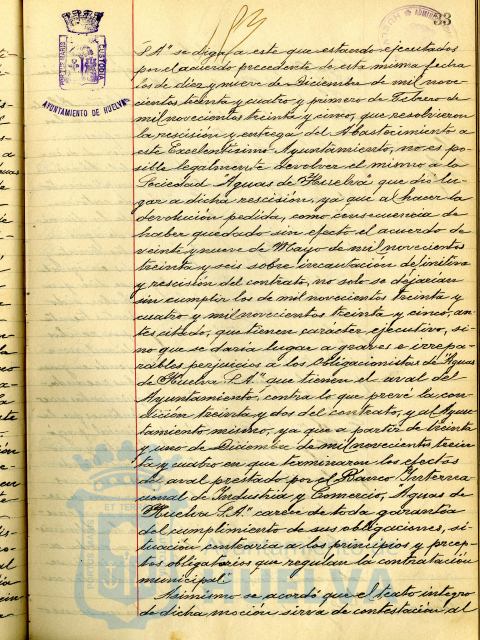 33
PORTUS MARIS
CUSTODIA
AYUNTAMIENTO DE HUELVA
S.A" se diga, a este que estando ejecutados
por el acuerdo precedente de esta misma fecha
los de diez y nueve de Diciembre de mil nove-
cientos treinta y cuatro y primero de Febrero de
mil novecientos treinta y cinco, que resolvieron
la rescisión y entrega del Abastecimiento a
este Excelentísimo Ayuntamiento, no es po-
sible legalmente devolver el mismo a la
Sociedad "Aguas de Huelva" que dió lu-
gar a dicha rescisión, ya que al hacer la
devolución pedida, como consecuencia de
haber quedado sin efecto el acuerdo de
veinte y nueve de Mayo de mil novecientos
treinta y seis sobre incautación definitiva
y rescisión del contrato, no solo se dejarían
sin cumplir los de mil novecientos treinta y
cuatro y mil novecientos treinta y cinco, an-
tes citado, que tienen carácter ejecutivo, si-
no que se daría lugar a graves e irrepa-
rables perjuicios a los Obligacionistas de "Aguas
de Huelva S.A" que tienen el aval del
Ayuntamiento, contra lo que prevé la con-
dición treinta y dos del contrato, y al Ayun-
tamiento mismo, ya que a partir de treinta
y uno de Diciembre de mil novecientos trein-
ta y cuatro en que terminaron los efectos
de aval prestado por el Banco Interna-
cional de Industria y Comercio, "Aguas de
Huelva S.A" carece de toda garantía
del cumplimiento de sus obligaciones, si-
tuación contraria a los principios y precep-
tos obligatorios que regulan la contratación
municipal."
Asimismo se acordó que el texto integro
de dicha moción sirva de contestación al
HUELVA